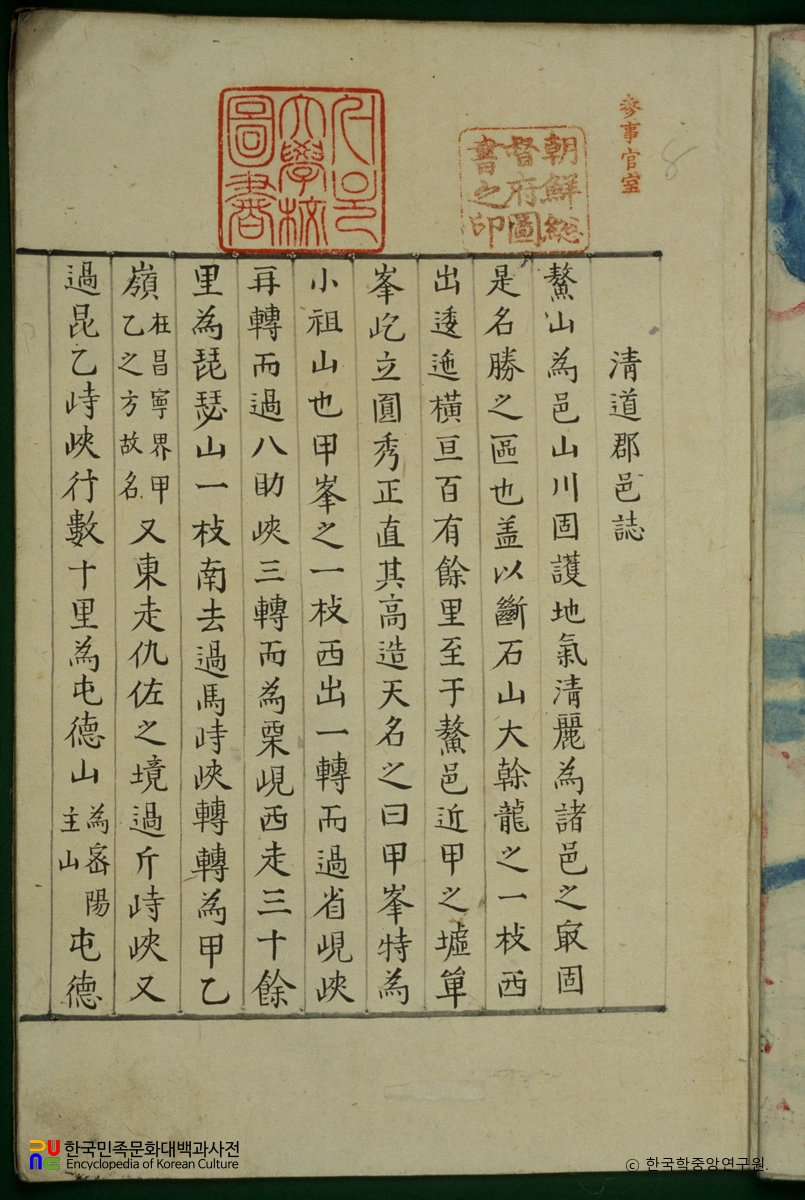 叅事官室
8
朝鮮総
督府圖
書之印
서울
大學校
圖書
清道郡邑誌
鰲山為邑山川固護地氣清麗為諸邑之㝡固
是名勝之區也盖以斷石山大榦龍之一枝西
出逶迤橫亘百有餘里至于鰲邑近甲之墟單
峯屹立圓秀正直其高造天名之曰甲峯特為
小祖山也甲峯之一枝西出一轉而過省峴峽
再轉而過八助峽三轉而為栗峴西走三十餘
里為琵瑟山一枝南去過馬峙峽轉轉為甲乙
嶺在昌寧界甲乙之方故名又東走仇佐之境過斤峙峽又
過昆乙峙峽行數十里為屯德山為密陽主山屯德
한국민족문화대백과사전
Encyclopedia of Korean Culture
ⓒ 한국학중앙연구원.